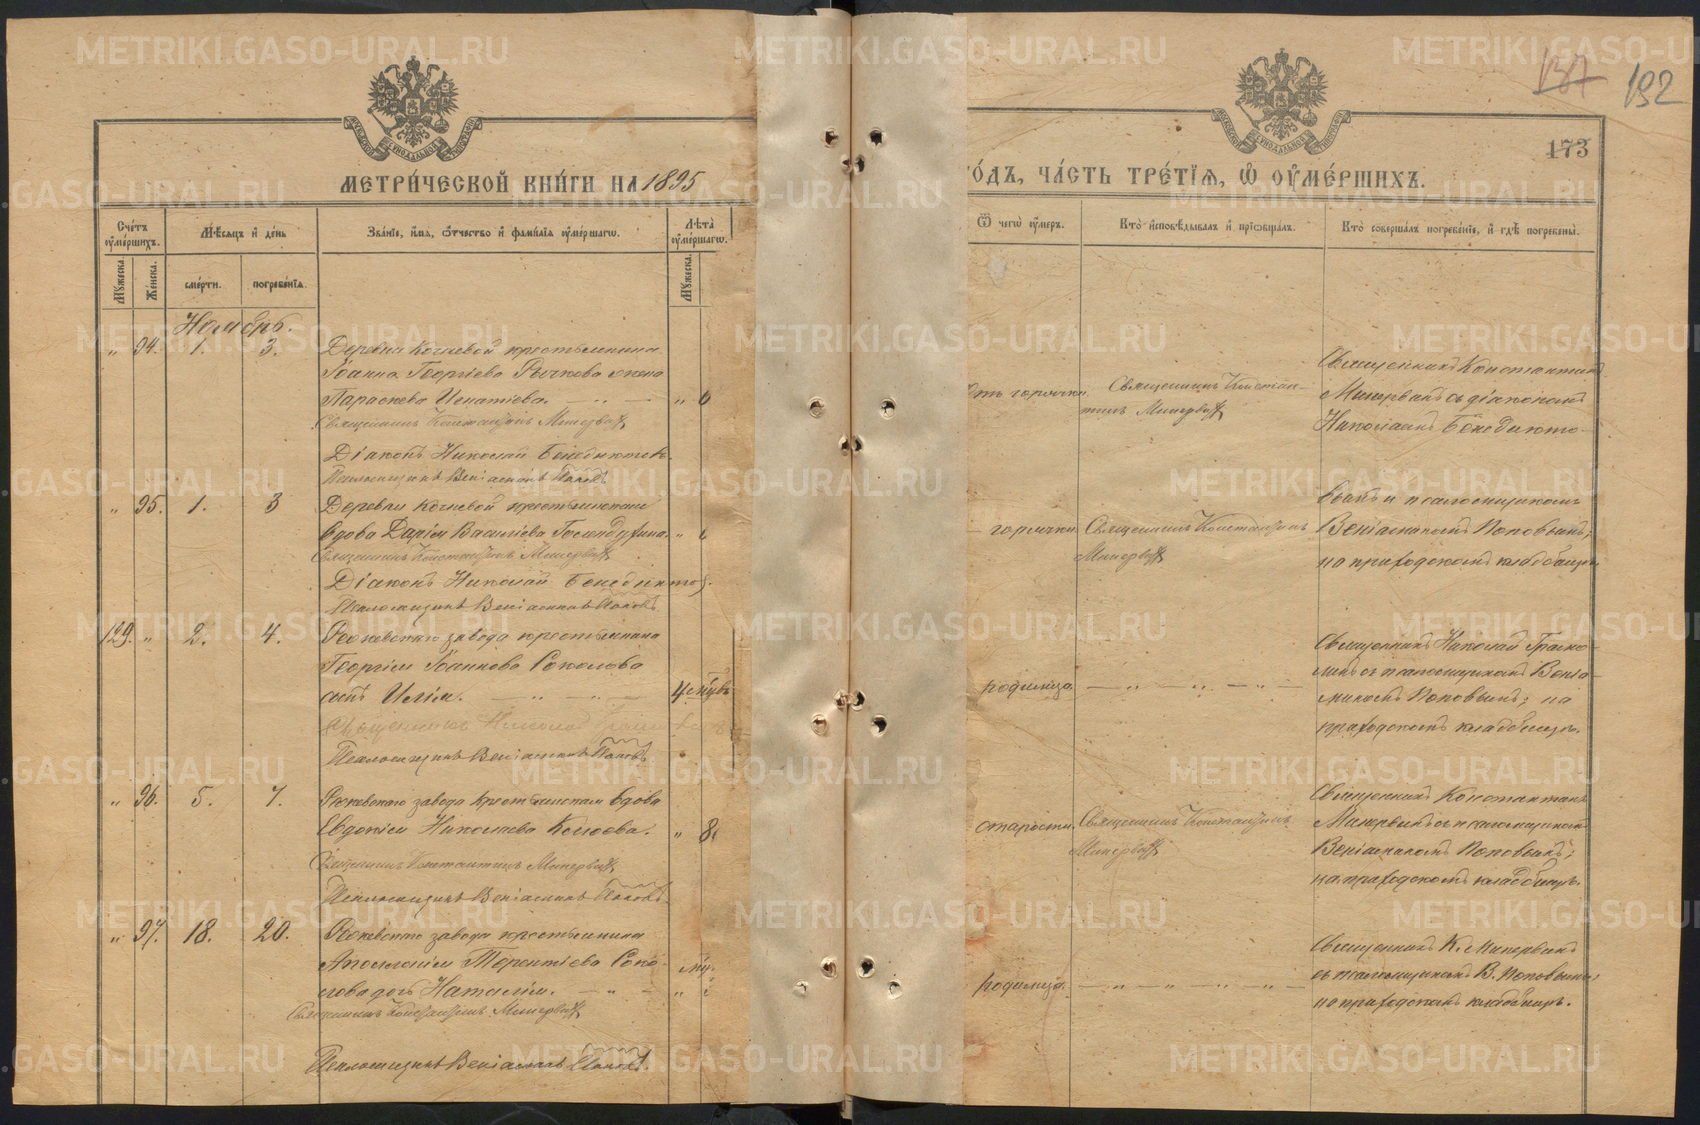 METRIKI.GASO-URAL.RU
132
173
МЕТРИ́ЧЕСКОЙ КНИ́ГИ НА 1895
ГО́ДЪ, ЧА́СТЬ ТРЕ́ТІѦ, Ѡ҆ ОУ҆МЕ́РШИХЪ.
Сче́тъ оу҆ме́ршихъ.
Мꙋ́жеска.
Же́нска.
Мѣ́сѧцъ и҆ де́нь
сме́рти.
погребе́нїѧ.
Зва́нїе, и҆́мѧ, ѻ҆́тчество и҆ фами́лїѧ оу҆ме́ршагѡ.
Лѣ́та оу҆ме́ршагѡ.
Мꙋ́жеска.
Ѿ чегѡ̀ оу҆́меръ.
Кто̀ и҆сповѣ́дывалъ и҆ прїѡбща́лъ.
Кто̀ соверша́лъ погребе́нїе, и҆ гдѣ̀ погребены̀.
Ноябрь.
" 94. 1. 3.
Деревни Кочневой крестьянина
Іоанна Георгіева Рычкова жена
Параскева Игнатіева. — " —
Священникъ Константинъ Минервинъ
Діаконъ Николай Бенедиктов
Псаломщикъ Веніаминъ Поповъ
отъ горячки
Священникъ Констан-
тинъ Минервинъ
Священникъ Константинъ
Минервинъ съ діакономъ
Николаемъ Бенедикто-
" 95. 1. 3
Деревни Кочневой крестьянская
вдова Дарія Василіева
Священникъ Константинъ Минервинъ
Діаконъ Николай Бенедиктов
Псаломщикъ Веніаминъ Поповъ
горячки
Священникъ Константинъ
Минервинъ
вымъ и псаломщикомъ
Веніаминомъ Поповымъ;
на приходскомъ кладбищѣ
129. " 2. 4.
завода крестьянина
Георгія Іоаннова Соколова
сынъ Илія. — " — " —
4 мѣсяц
Священникъ Николай
Псаломщикъ Веніаминъ Поповъ
родимца. — " — " — " —
Священникъ Николай
съ псаломщикомъ Веніа-
миномъ Поповымъ; на
приходскомъ кладбищѣ.
" 96. 5. 7.
завода крестьянская вдова
Евдокія Николаева
" 8
Священникъ Константинъ Минервинъ
Псаломщикъ Веніаминъ Поповъ
старости
Священникъ Константинъ
Минервинъ
Священникъ Константинъ
Минервинъ съ псаломщикомъ
Веніаминомъ Поповымъ;
на приходскомъ кладбищѣ.
" 97. 18. 20.
завода крестьянина
Терентіева Соко-
лова дочь Наталія. — " —
Священникъ Константинъ Минервинъ
Псаломщикъ Веніаминъ Поповъ.
родимца. — " — " — " —
Священникъ К. Минервинъ
съ псаломщикомъ В. Поповымъ;
на приходскомъ кладбищѣ.